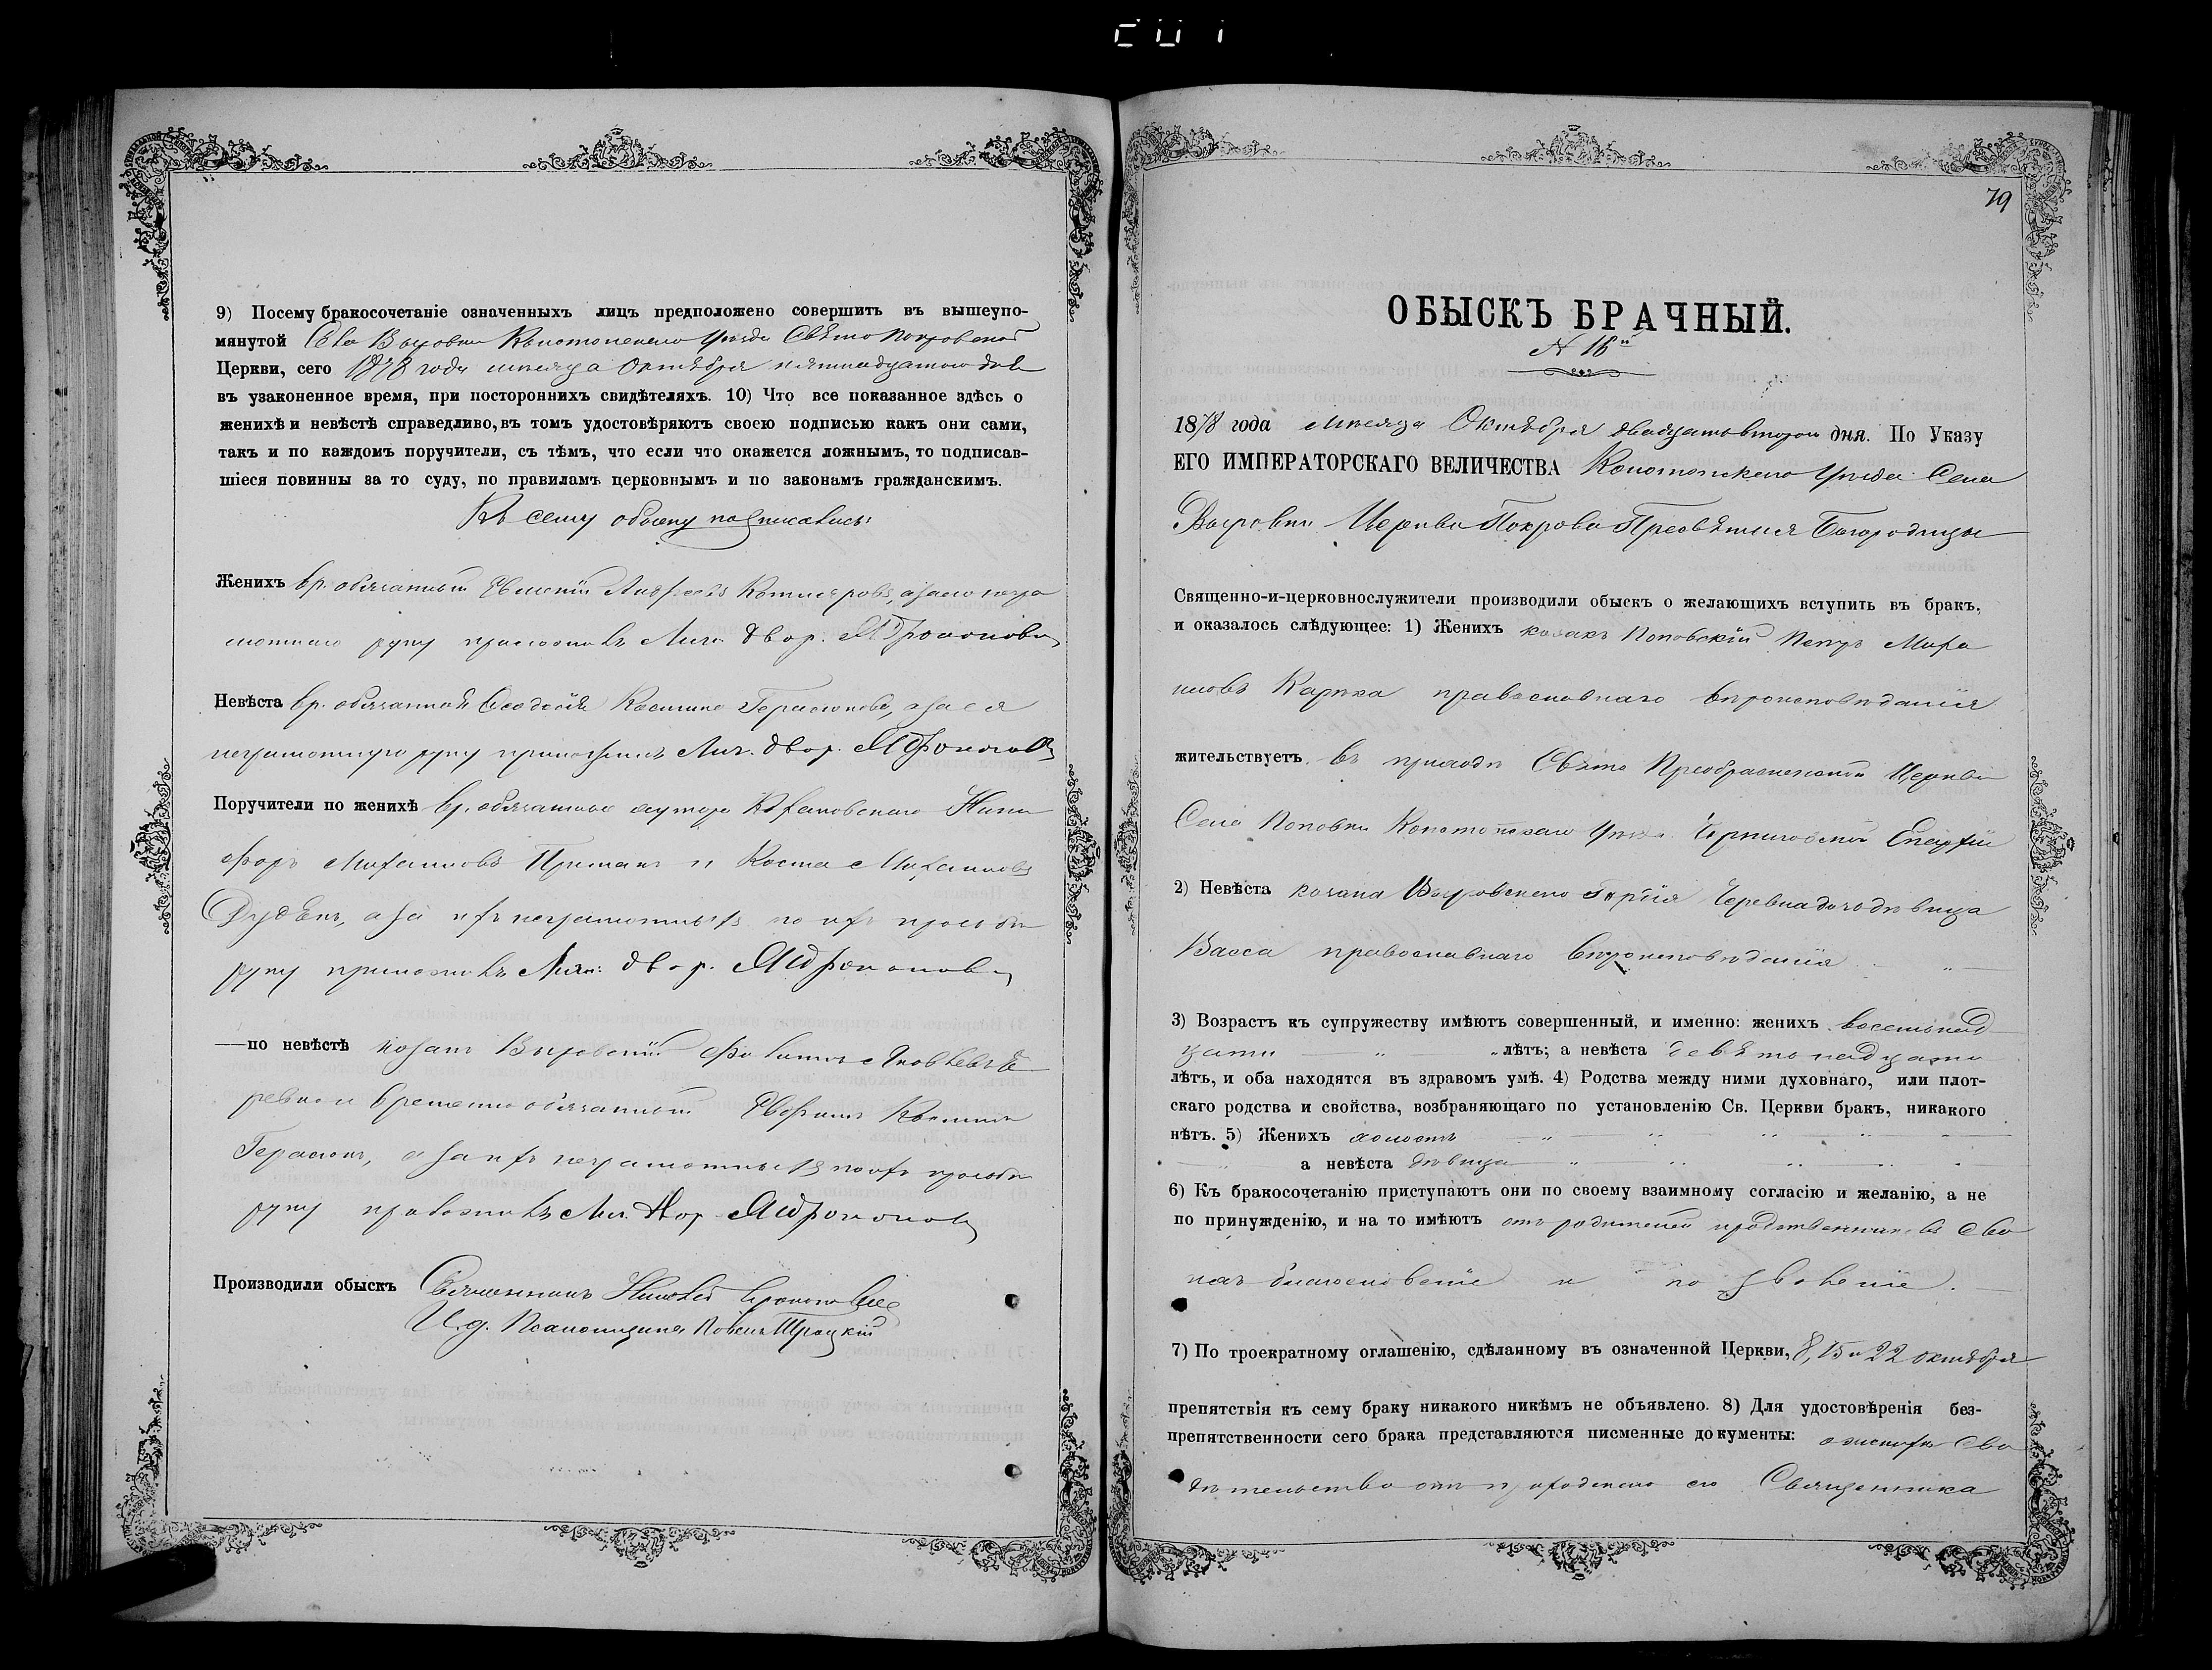 9) Посему бракосочетаніе означенныхъ лицъ предположено совершить въ вышеупо-
мянутой Села Выровки Конотопскаго уѣзда Свято Покровской
Церкви, сего 1878 года мѣсяца Октября пятнадцатого дня
въ узаконенное время, при постороннихъ свидѣтеляхъ. 10) Что все показанное здѣсь о
женихѣ и невѣстѣ справедливо, въ томъ удостовѣряютъ своею подписью какъ они сами,
такъ и по каждомъ поручители, съ тѣмъ, что если что окажется ложнымъ, то подписав-
шіеся повинны за то суду, по правиламъ церковнымъ и по законамъ гражданскимъ.
Къ сему обыску подписались:
Женихъ вр. обязанный Андреевъ а за него негра
мотнаго руку приложилъ Личн. двор.
Невѣста вр. обязанной Ѳеодосія Космина а за нея
неграмотную руку приложилъ Лич. двор.
Поручители по женихѣ вр. обязанные хутора Ники
форъ Михаиловъ и Косма Михаиловъ
а за ихъ неграмотныхъ по ихъ прозьбѣ
руку приложилъ Личн: двор.
—по невѣстѣ козакъ Выровскій Яковлевъ Че
ревко и временнообязанный Косминъ
Герасюкъ, а за ихъ неграмотныхъ по ихъ прозьбѣ
руку приложилъ Лич. Двор.
Производили обыскъ Священникъ Николай
И.д. Псаломщика Павелъ Троцкій
79
ОБЫСКЪ БРАЧНЫЙ.
N 16й
1878 года мѣсяца Октября двадцать втораго дня. По Указу
ЕГО ИМПЕРАТОРСКАГО ВЕЛИЧЕСТВА Конотопскаго уѣзда Села
Выровки Церкви Покрова Пресвятыя Богородицы
Священно-и-церковнослужители производили обыскъ о желающихъ вступить въ бракъ,
и оказалось слѣдующее: 1) Женихъ козакъ Поповскій Петръ Миха
иловъ православнаго вѣроисповѣданія
жительствуетъ въ приходѣ Свято Преображенской Церкви
Села Поповки Конотопскаго уѣзда Черниговской Епархіи
2) Невѣста козака Выровскаго Черевка дочь дѣвица
Васса православнаго вѣроисповѣданія
3) Возрастъ къ супружеству имѣютъ совершенный, и именно: женихъ восемнад
цати лѣтъ; а невѣста девятнадцати
лѣтъ, и оба находятся въ здравомъ умѣ. 4) Родства между ними духовнаго, или плот-
скаго родства и свойства, возбраняющаго по установленію Св. Церкви бракъ, никакого
нѣтъ. 5) Женихъ холостъ
а невѣста дѣвица
6) Къ бракосочетанію приступаютъ они по своему взаимному согласію и желанію, а не
по принужденію, и на то имѣютъ отъ родителей и родственниковъ сво
ихъ благословеніе и позволеніе.
7) По троекратному оглашенію, сдѣланному въ означенной Церкви, 8, 15 и 22 октября
препятствія къ сему браку никакого никѣмъ не объявлено. 8) Для удостовѣренія без-
препятственности сего брака представляются писменные документы: о женихѣ сви
дѣтельство отъ приходскаго его Священника